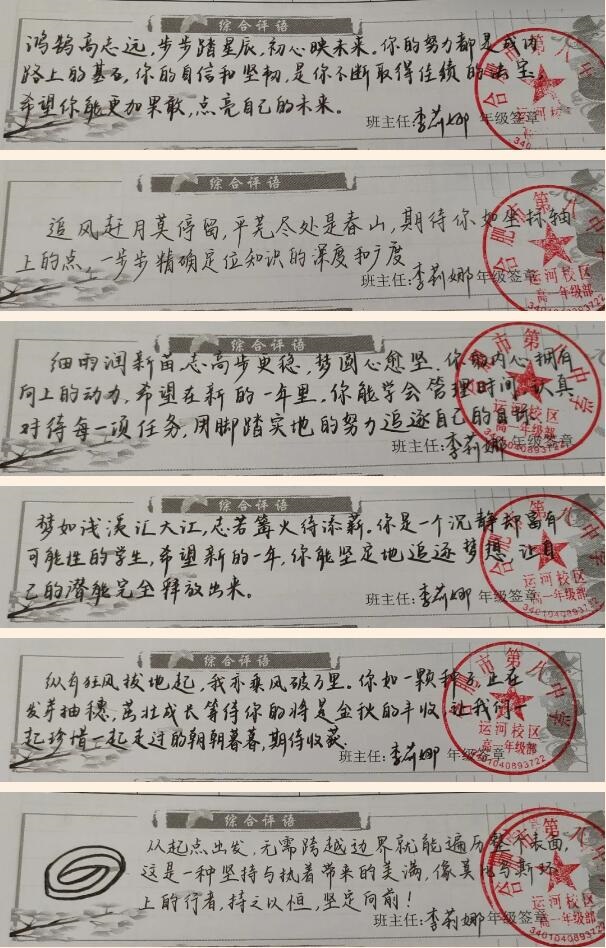 综合评语
鸿鹄高志远,步步踏星辰,初心映未来。你的努力都是成功
路上的基石,你的自信和坚韧,是你不断取得佳绩的法宝,
希望你能更加果敢,点亮自己的未来。
班主任:李莉娜 年级签章
合肥市第八中学
运河校区
综合评语
追风赶月莫停留,平芜尽处是春山,期待你如坐标轴
上的点,一步步精确定位知识的深度和广度
班主任:李莉娜 年级签章
合肥市第八中学
运河校区
高一年级部
综合评语
细雨润新苗,志高步更稳,梦圆心愈坚。你的内心拥有
向上的动力,希望在新的一年里,你能学会管理时间,认真
对待每一项任务,用脚踏实地的努力追逐自己的目标。
班主任:李莉娜 年级签章
合肥市第八中学
运河校区
高一年级部
3401040893722
综合评语
梦如浅溪汇大江,志若篝火待添薪。你是一个沉静却富有
可能性的学生,希望新的一年,你能坚定地追逐梦想,让自
己的潜能完全释放出来。
班主任:李莉娜 年级签章
合肥市第八中学
运河校区
高一年级部
3401040893722
综合评语
纵有狂风拔地起,我亦乘风破万里。你如一颗种子正在
发芽抽穗,茁壮成长等待你的将是金秋的丰收,让我们一
起珍惜一起走过的朝朝暮暮,期待收获。
班主任:李莉娜 年级签章
合肥市第八中学
运河校区
高一年级部
3401040893722
综合评语
从起点出发,无需跨越边界就能遍历整个表面,
这是一种坚持与执着带来的美满,像莫比乌斯环
上的行者,持之以恒,坚定向前!
班主任:李莉娜 年级签章
合肥市第八中学
运河校区
高一年级部
3401040893722